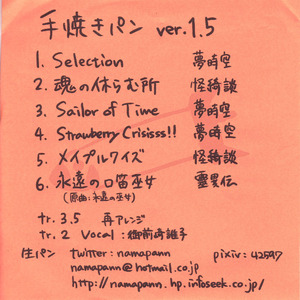 手焼きパン ver.1.5
1. Selection 夢時空
2. 魂の休らむ所 怪綺談
3. Sailor of Time 夢時空
4. Strawberry Crisisss!! 夢時空
5. メイプルワイズ 怪綺談
6. 永遠の口笛巫女 霊異伝
(原曲:永遠の巫女)
tr. 3.5 再アレンジ
tr. 2 Vocal:御前崎誰子
生パン twitter: namapann pixiv: 42597
namapann@hotmail.co.jp
http://namapann.hp.infoseek.co.jp/